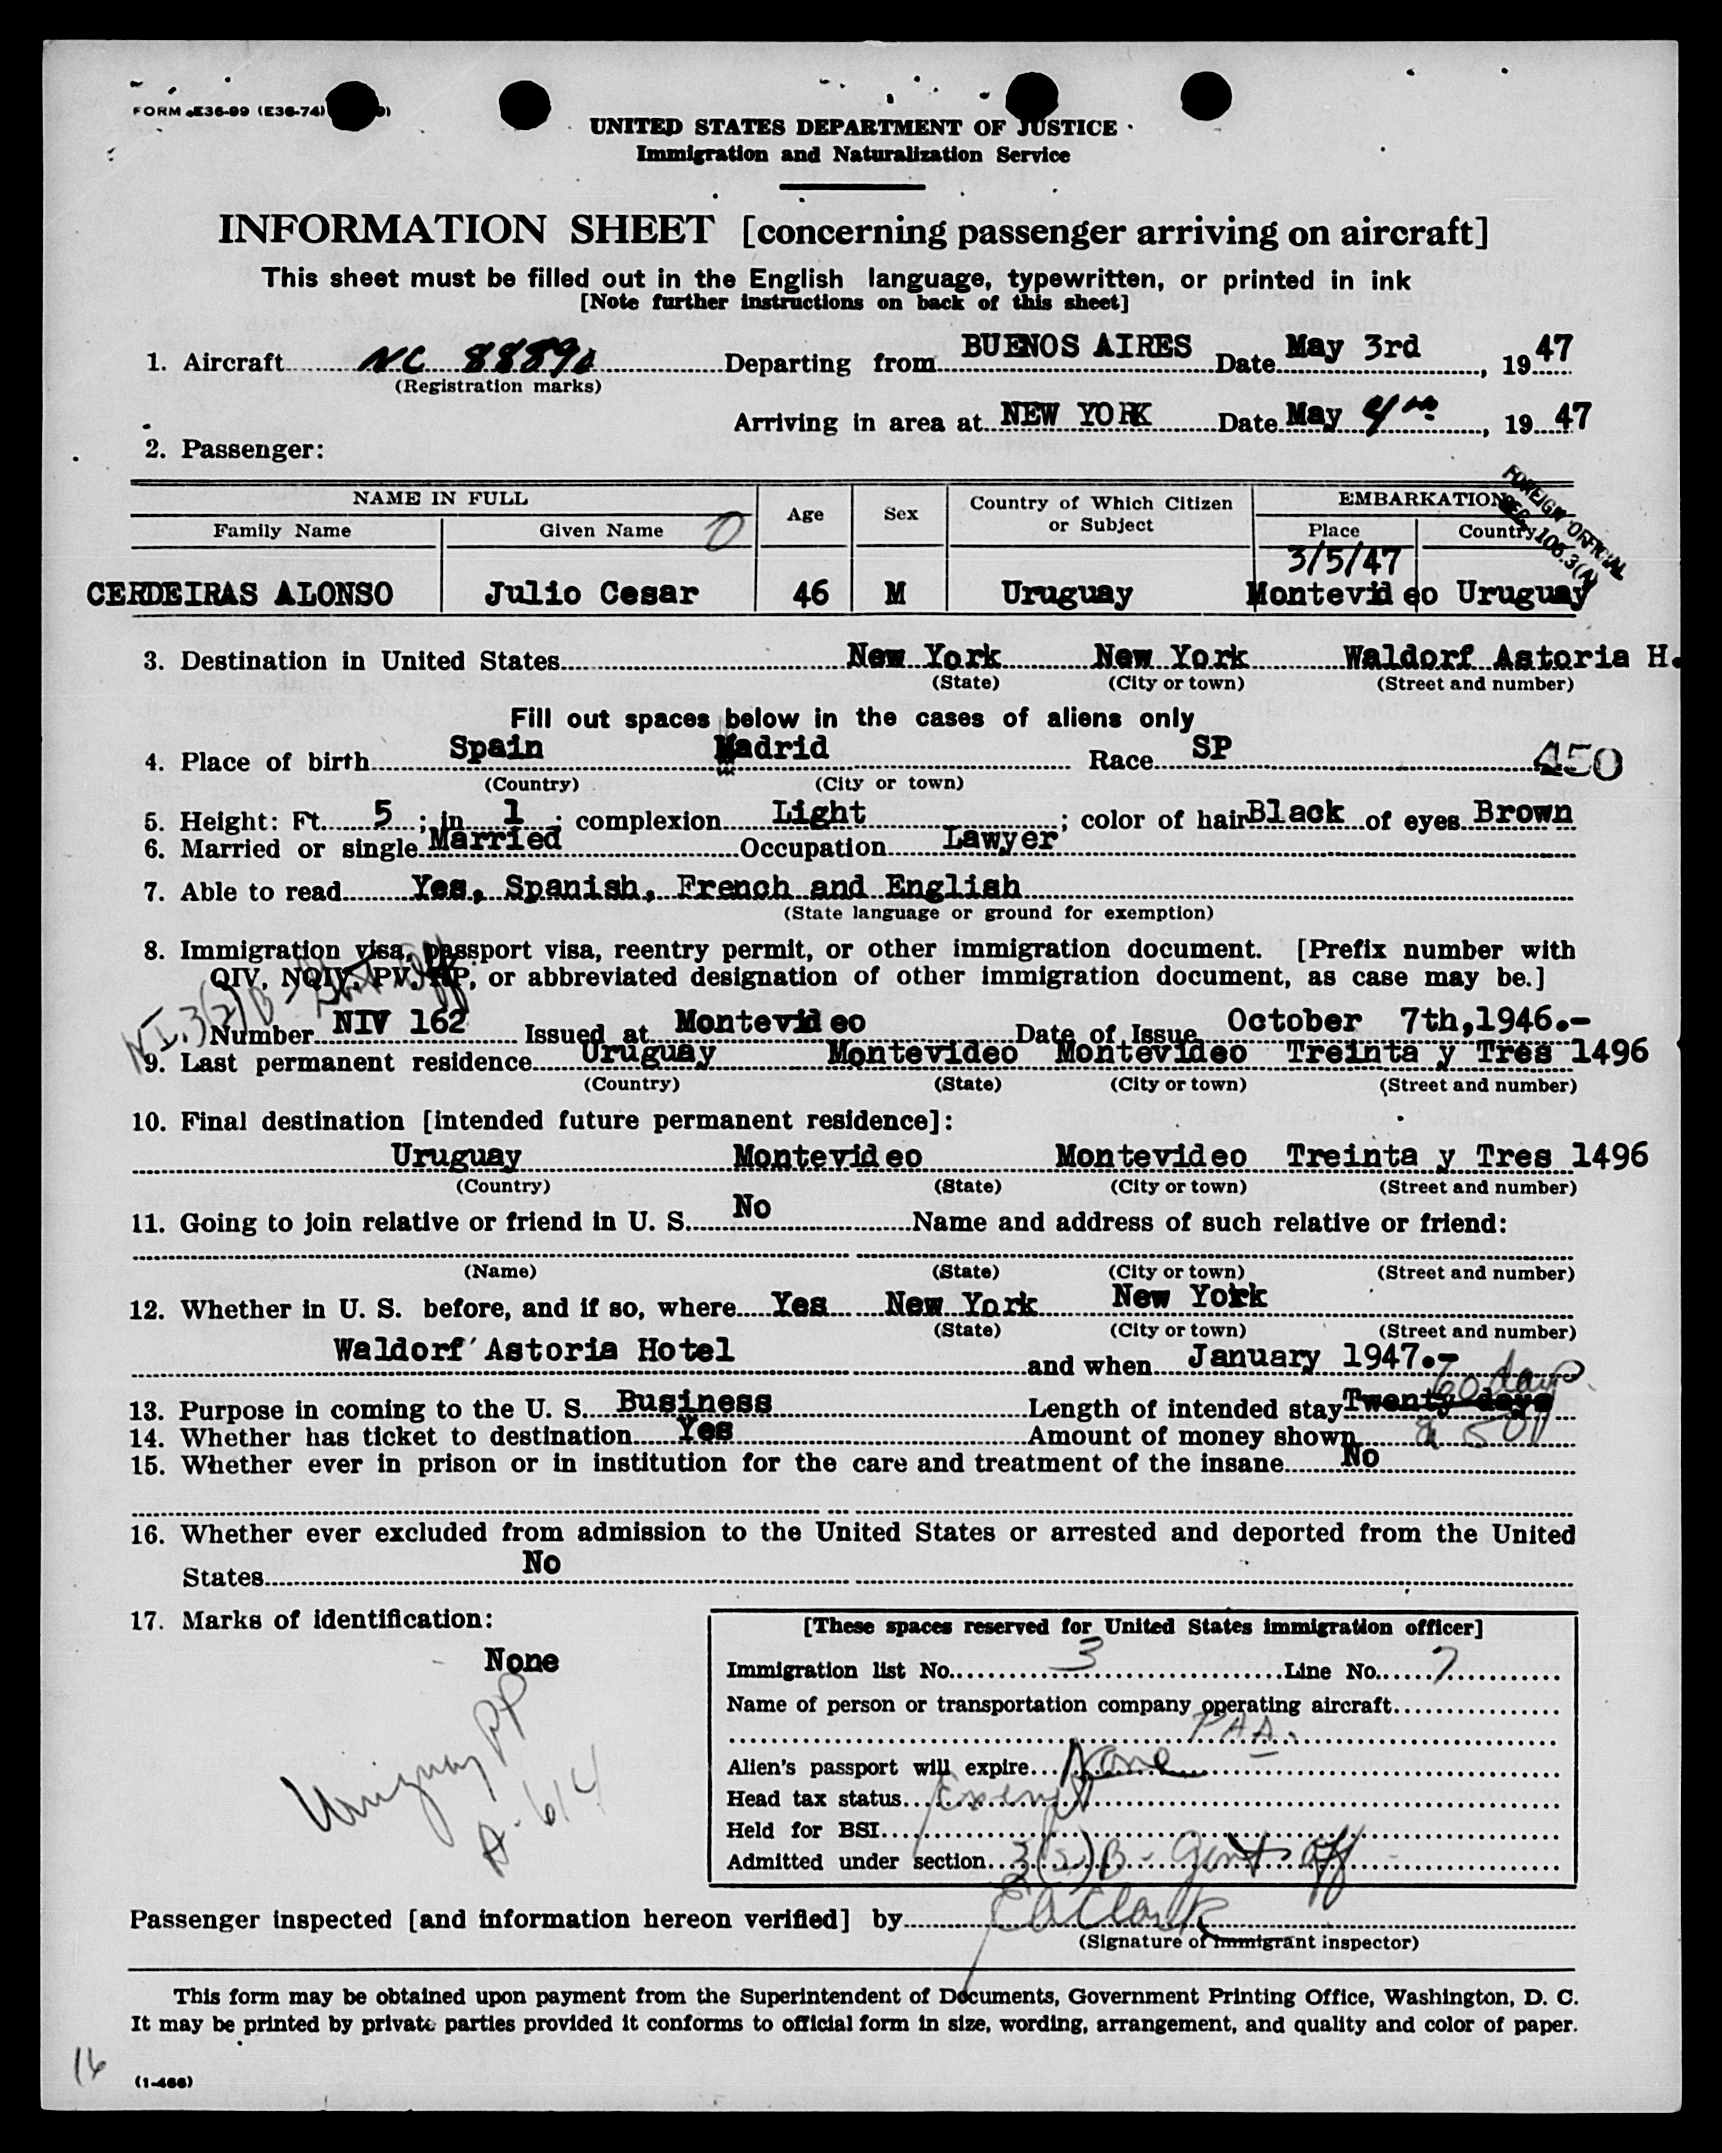 FORM E36-99 (E36-74)
UNITED STATES DEPARTMENT OF JUSTICE
Immigration and Naturalization Service
INFORMATION SHEET [concerning passenger arriving on aircraft]
This sheet must be filled out in the English language, typewritten, or printed in ink
[Note further instructions on back of this sheet]
1. Aircraft NC Departing from BUENOS AIRES Date May 3rd, 1947
(Registration marks)
Arriving in area at NEW YORK Date May 4, 1947
2. Passenger:
FOREIGN OFFICIAL
SEC. 106.3(A)
NAME IN FULL Age Sex Country of Which Citizen or Subject EMBARKATION
Family Name Given Name Place Country
3/5/47
CERDEIRAS ALONSO Julio Cesar 46 M Uruguay Montevideo Uruguay
3. Destination in United States New York New York Waldorf Astoria H.
(State) (City or town) (Street and number)
Fill out spaces below in the cases of aliens only
4. Place of birth Spain Madrid Race SP 450
(Country) (City or town)
5. Height: Ft. 5; in 1; complexion Light; color of hair Black of eyes Brown
6. Married or single Married Occupation Lawyer
7. Able to read Yes, Spanish, French and English
(State language or ground for exemption)
8. Immigration visa, passport visa, reentry permit, or other immigration document. [Prefix number with
QIV, NQIV, PV, RP, or abbreviated designation of other immigration document, as case may be.]
Number NIV 162 Issued at Montevideo Date of Issue October 7th,1946.-
9. Last permanent residence Uruguay Montevideo Montevideo Treinta y Tres 1496
(Country) (State) (City or town) (Street and number)
10. Final destination [intended future permanent residence]:
Uruguay Montevideo Montevideo Treinta y Tres 1496
(Country) (State) (City or town) (Street and number)
11. Going to join relative or friend in U. S. No Name and address of such relative or friend:
(Name) (State) (City or town) (Street and number)
12. Whether in U. S. before, and if so, where Yes New York New York
(State) (City or town) (Street and number)
Waldorf Astoria Hotel and when January 1947.-
60 days
13. Purpose in coming to the U. S. Business Length of intended stay Twenty days
14. Whether has ticket to destination Yes Amount of money shown
15. Whether ever in prison or in institution for the care and treatment of the insane No
16. Whether ever excluded from admission to the United States or arrested and deported from the United
States No
17. Marks of identification:
None
Uruguay PP
A-614
[These spaces reserved for United States immigration officer]
Immigration list No. 3 Line No. 7
Name of person or transportation company operating aircraft
PAA.
Alien's passport will expire None
Head tax status Exempt
Held for BSI
Admitted under section 3(2)B - Govt Off
Passenger inspected [and information hereon verified] by E A Clark
(Signature of immigrant inspector)
This form may be obtained upon payment from the Superintendent of Documents, Government Printing Office, Washington, D. C.
It may be printed by private parties provided it conforms to official form in size, wording, arrangement, and quality and color of paper.
16
(1-466)